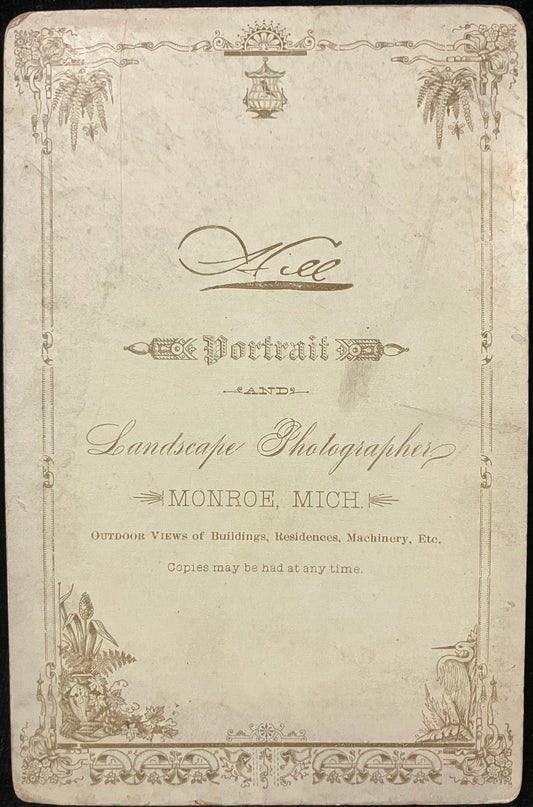 Hill
Portrait
AND
Landscape Photographer
MONROE, MICH.
OUTDOOR VIEWS of Buildings, Residences, Machinery, Etc.
Copies may be had at any time.